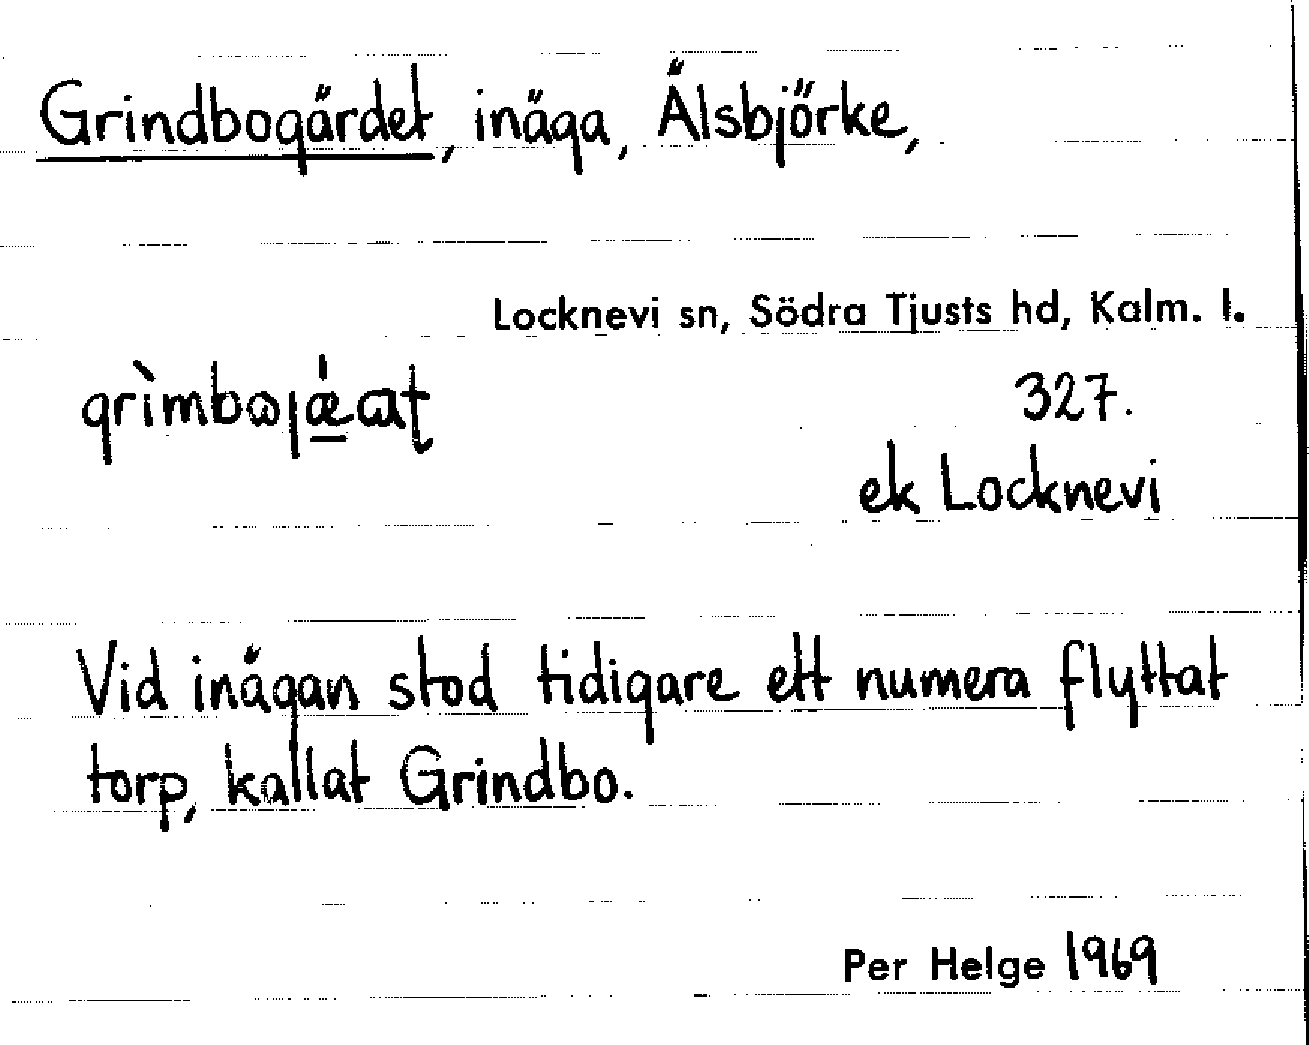 Grindbogärdet, inäga, Älsbjörke,
Locknevi sn, Södra Tjusts hd, Kalm. l.
327.
ek Locknevi
Vid inägan stod tidigare ett numera flyttat
torp, kallat Grindbo.
Per Helge 1969